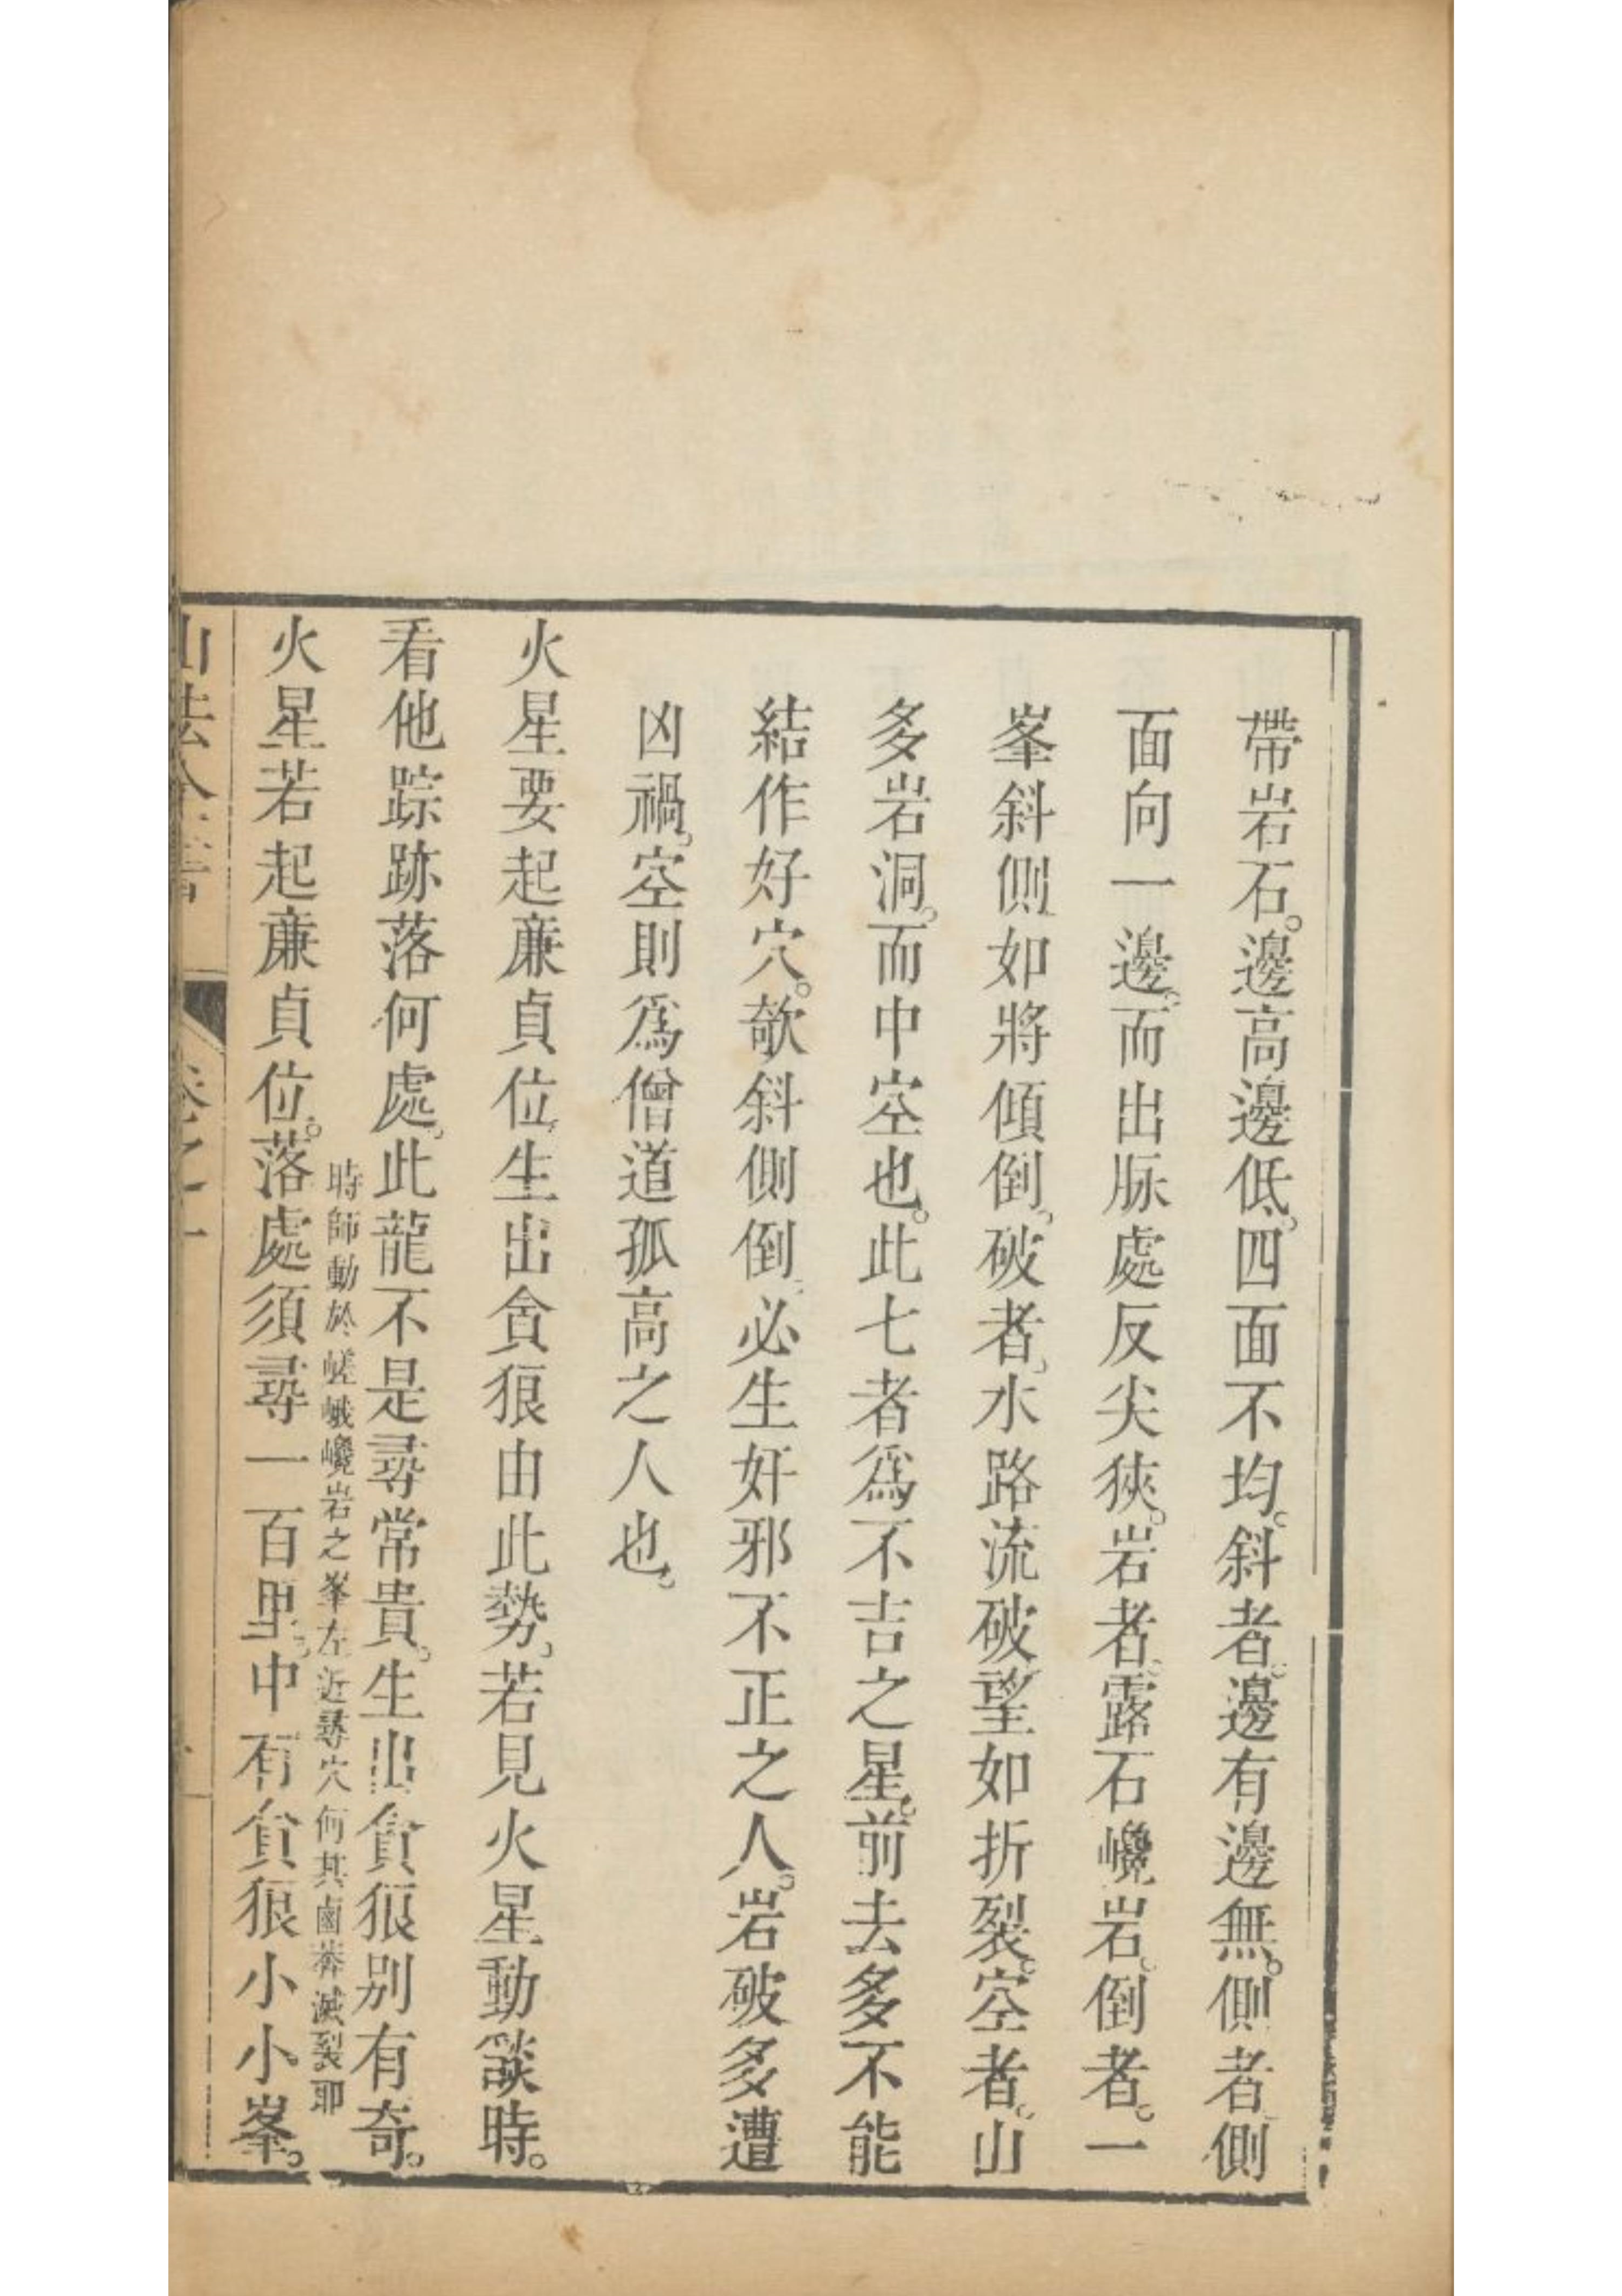 帶岩石。邊高邊低。四面不均。斜者。邊有邊無。側者側
面向一邊。而出脈處反尖狹。岩者。露石巉岩。倒者。一
峯斜側如將傾倒。破者。水路流破望如折裂。空者。山
多岩洞。而中空也。此七者爲不吉之星。前去多不能
結作好穴。欹斜側倒。必生奸邪不正之人。岩破多遭
凶禍。空則爲僧道孤高之人也。
火星要起廉貞位。生出貪狼由此勢。若見火星動燄時。
看他踪跡落何處。此龍不是尋常貴。生出貪狼別有奇。
時師動於嵯峨巉岩之峯左近尋穴何其鹵莽滅裂耶
火星若起廉貞位。落處須尋一百里。中有貪狼小小峯。
山法全書 卷之一